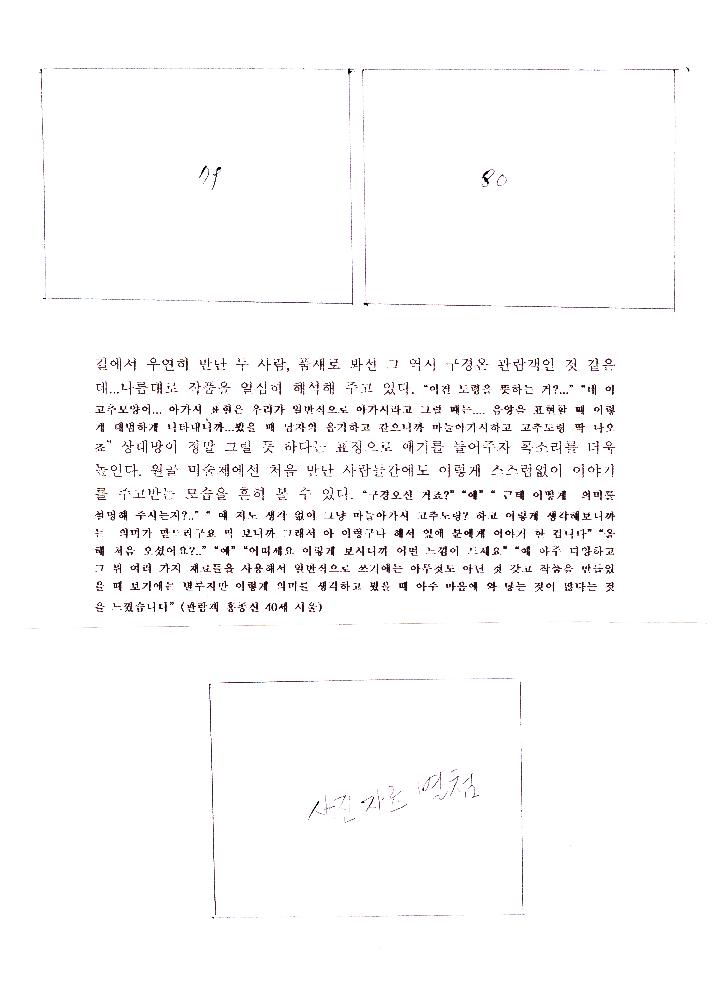 79
80
길에서 우연히 만난 두 사람, 품새로 봐선 그 역시 구경온 관람객인 것 같은
데...나름대로 작품을 열심히 해석해 주고 있다. “이건 도령을 뜻하는 거?...” “네 이
고추모양이... 아가시 표현은 우리가 일반적으로 아가시라고 그럴 때는.... 음양을 표현할 때 이렇
게 대범하게 나타내니까...봤을 때 남자의 음기하고 같으니까 마늘아가시하고 고추도령 딱 나오
죠” 상대방이 정말 그럴 듯 하다는 표정으로 얘기를 들어주자 목소리를 더욱
높인다. 월출 미술제에선 처음 만난 사람들간에도 이렇게 스스럼없이 이야기
를 주고받는 모습을 흔히 볼 수 있다. “구경오신 거죠?” “예” “ 근데 이렇게 의미를
설명해 주시는지?..” “ 예 저도 생각 없이 그냥 마늘아가시 고추도령? 하고 이렇게 생각해보니까
는 의미가 만드리구요 딱 보니까 그래서 아 이렇구나 해서 옆에 분에게 이야기 한 겁니다” “올
해 처음 오셨어요?..” “예” “어떠세요 이렇게 보시니까 어떤 느낌이 드세요” “예 아주 다양하고
그 뭐 여러 가지 재료들을 사용해서 일반적으로 쓰기에는 아무것도 아닌 것 갖고 작품을 만들었
을 때 보기에는 별루지만 이렇게 의미를 생각하고 봤을 때 아주 마음에 와 닿는 것이 많다는 것
을 느꼈습니다” (관람객 홍종선 40세 서울)
사진 자료 별첨